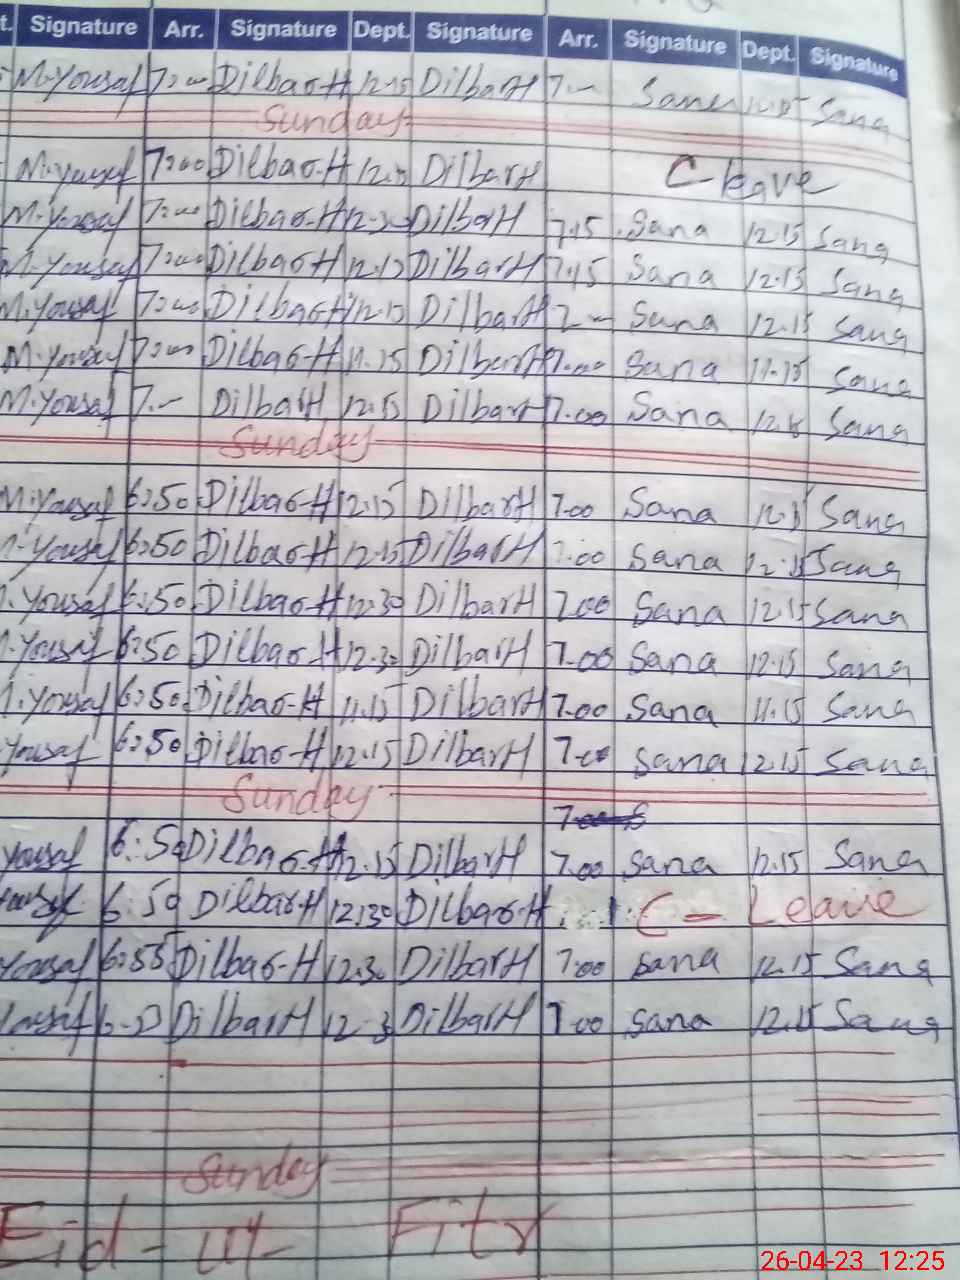 t. Signature Arr. Signature Dept. Signature Arr. Signature Dept. Signature
M.Yousaf 7:00 Dilbar H 12.15 DilbarH 7.— Sana Sana
Sunday
M.Yousaf 7:00 Dilbar-H DilbarH C leave
M.Yousaf 7:00 Dilbar-H 12.30 DilbarH 7.15 Sana 12.15 Sana
M.Yousaf 7:00 Dilbar H 12.15 DilbarH 7.15 Sana 12.15 Sana
M.Yousaf 7:00 Dilbar H 12.15 DilbarH 7.— Sana 12.15 Sana
M.Yousaf 7:00 Dilbar-H 11.15 DilbarH 7.00 Sana 11.15 Sana
M.Yousaf 7.— DilbarH 12.15 DilbarH 7.00 Sana Sana
Sunday
M.Yousaf 6:50 Dilbar-H 12.15 DilbarH 7.00 Sana Sana
Yousaf 6:50 Dilbar-H 12.15 DilbarH 7.00 Sana 12.15 Sana
Yousaf 6:50 Dilbar-H 12.30 DilbarH 7.00 Sana 12.15 Sana
Yousaf 6:50 Dilbar-H 12.30 DilbarH 7.00 Sana 12.15 Sana
Yousaf 6:50 Dilbar-H 11.15 DilbarH 7.00 Sana 11.15 Sana
Yousaf 6:50 Dilbar-H 12.15 DilbarH 7.00 Sana 12.15 Sana
Sunday
Yousaf 6:50 Dilbar-H 12.15 DilbarH 7.00 Sana 12.15 Sana
ousaf 6:50 Dilbar-H 12:30 Dilbar-H C - Leave
Yousaf 6:55 Dilbar-H 12.30 DilbarH 7:00 Sana 12.15 Sana
ousaf DilbarH DilbarH 7.00 Sana 12.15 Sana
Sunday
Eid - ul - Fitr
26-04-23 12:25